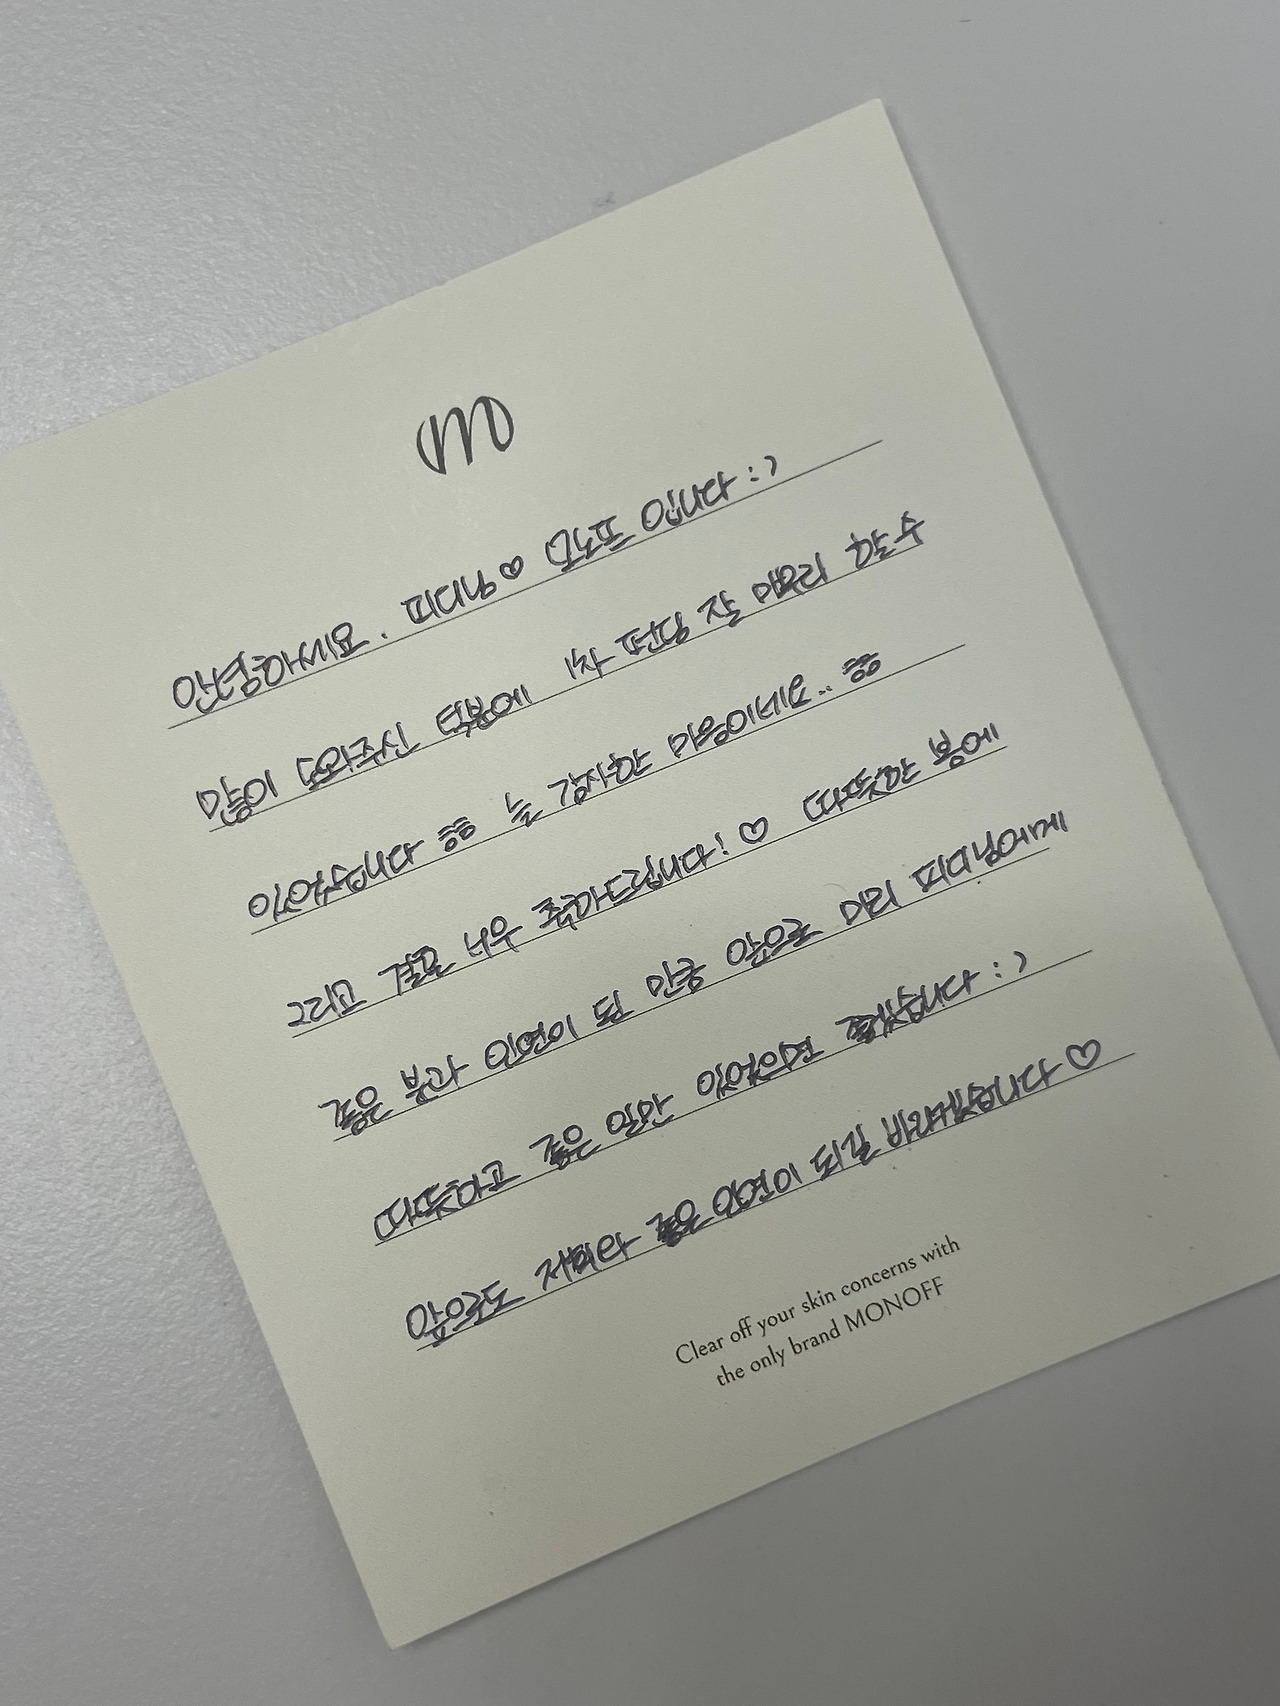 m
안녕하세요. 피디님♡ 모노프 입니다 :)
많이 도와주신 덕분에 1차 펀딩 잘 마무리 할 수
있었습니다 ㅎㅎ 늘 감사한 마음이네요.. ㅎㅎ
그리고 결혼 너무 축하드립니다!♡ 따뜻한 봄에
좋은 분과 인연이 된 만큼 앞으로 피디님에게
따뜻하고 좋은 일만 있었으면 좋겠습니다 :)
앞으로도 저희와 좋은 인연이 되길 바라겠습니다♡
Clear off your skin concerns with
the only brand MONOFF